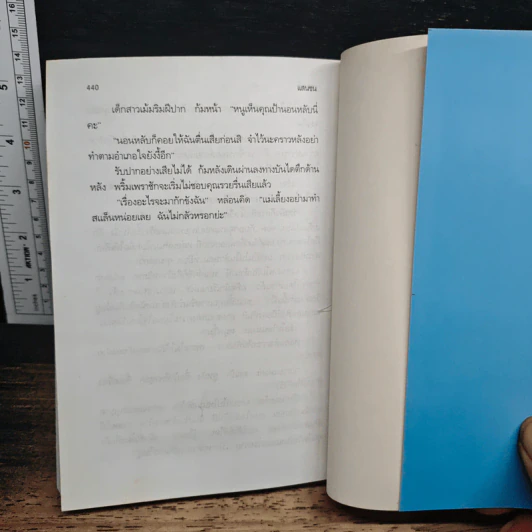 440
แสนชน
เด็กสาวเม้มริมฝีปาก ก้มหน้า "หนูเห็นคุณป้านอนหลับนี่
คะ"
"นอนหลับก็คอยให้ฉันตื่นเสียก่อนสิ จำไว้นะคราวหลังอย่า
ทำตามอำเภอใจยังงี้อีก"
รับปากอย่างเสียไม่ได้ ก้มหลังเดินผ่านลงทางบันไดตึกด้าน
หลัง พริ้มเพราชักจะเริ่มไม่ชอบคุณรวยรื่นเสียแล้ว
"เรื่องอะไรจะมากักขังฉัน" หล่อนคิด "แม่เลี้ยงอย่ามาทำ
สแล็นหน่อยเลย ฉันไม่กลัวหรอกย่ะ"